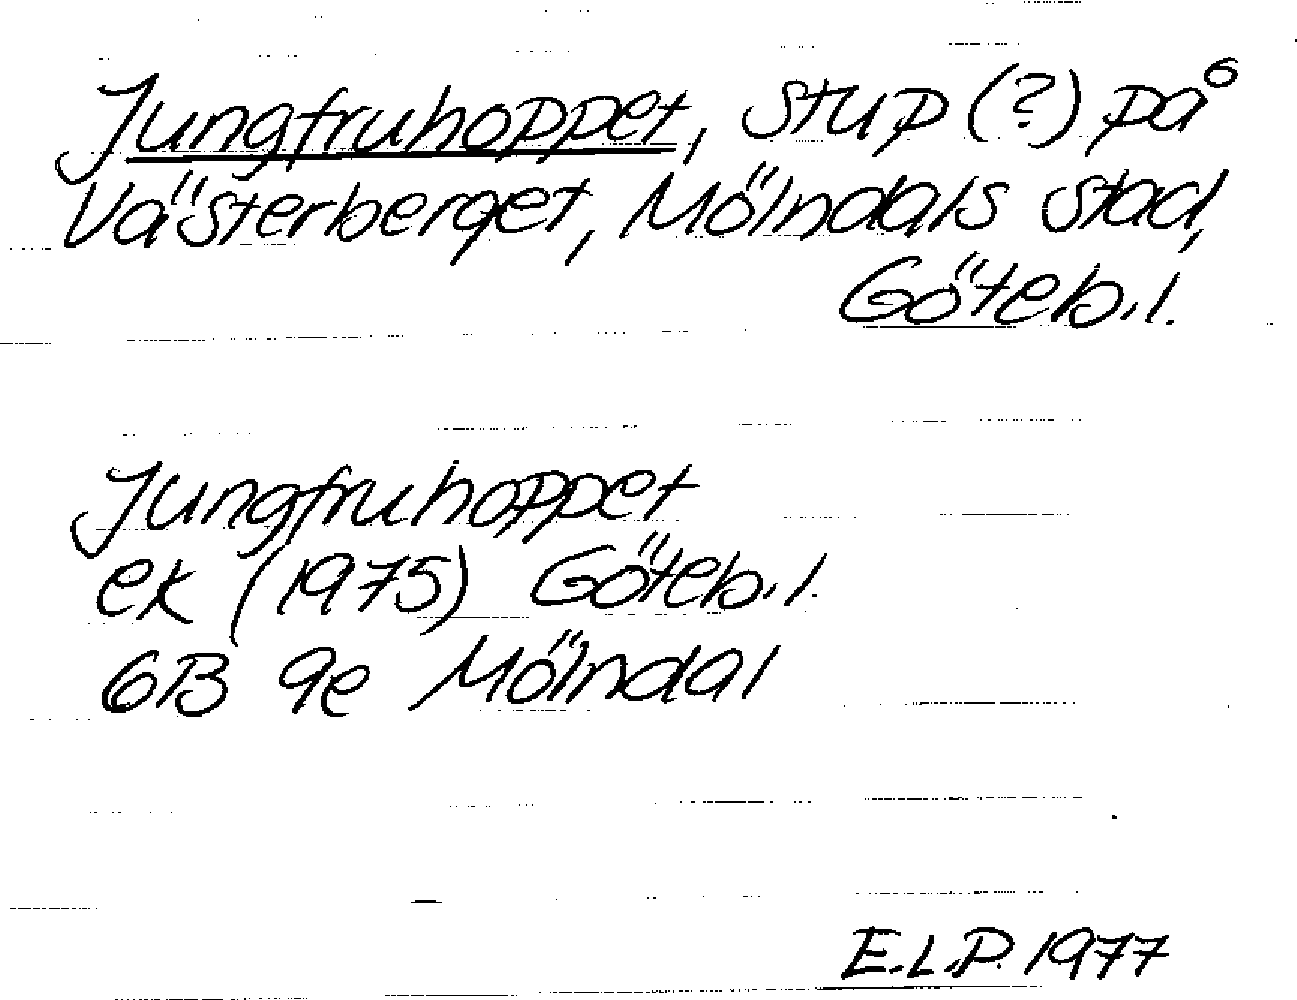 Jungfruhoppet, stup (?) på
Västerberget, Mölndals stad,
Göteb.l.
Jungfruhoppet
ek (1975) Göteb.l.
6B 9e Mölndal
E.L.P. 1977